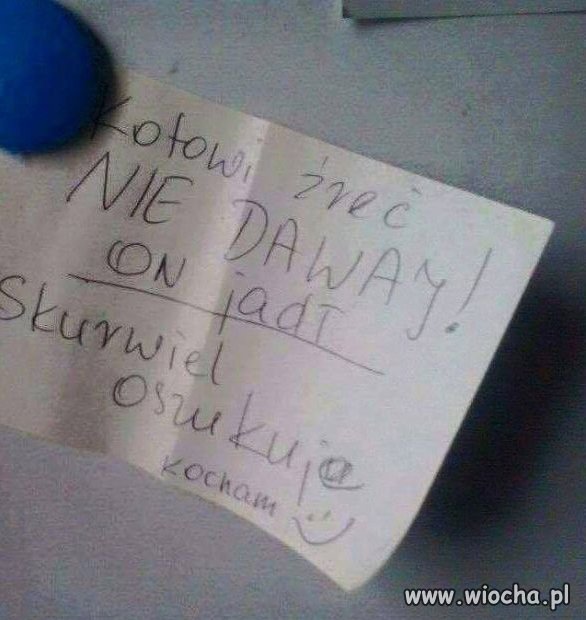 Kotowi żreć
NIE DAWAJ!
ON jadł
Skurwiel
oszukuje
kocham :)
www.wiocha.pl